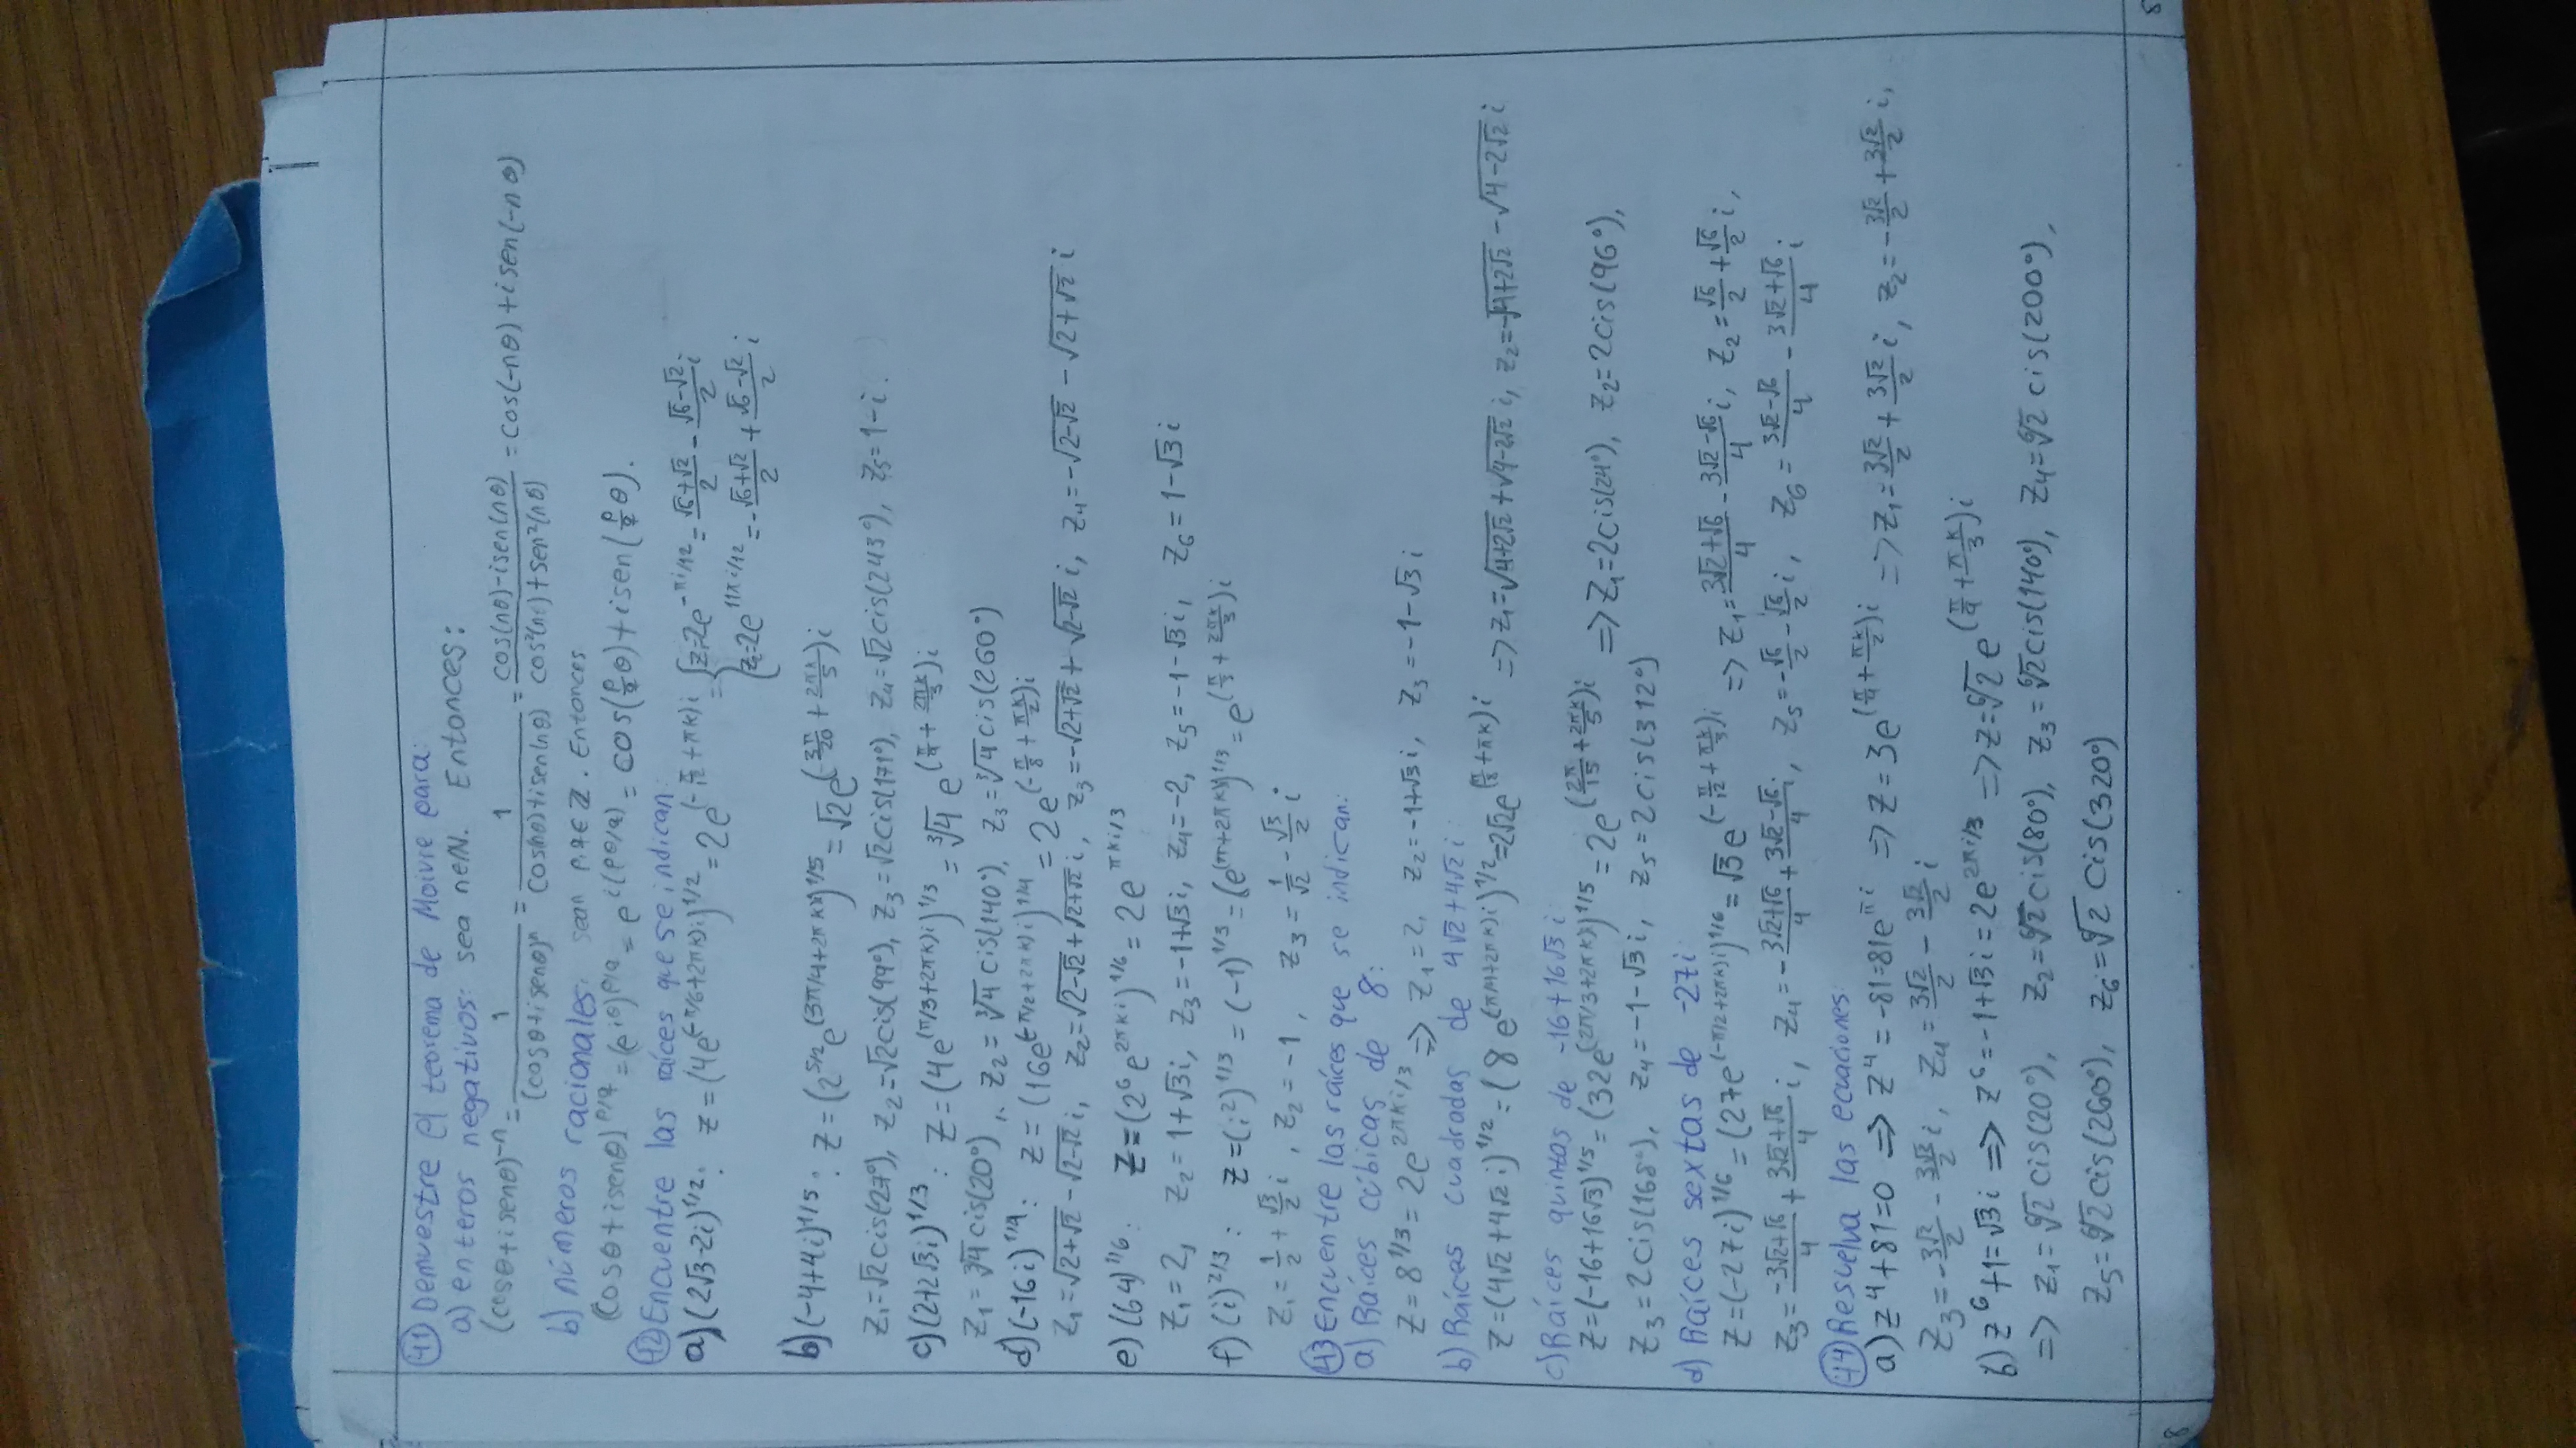 41 Demuestre el teorema de Moivre para:
a) enteros negativos: sea n∈ℕ. Entonces:
(cosθ+isenθ)^-n = 1/(cosθ+isenθ)^n = 1/(cos(nθ)+isen(nθ)) = (cos(nθ)-isen(nθ))/(cos²(nθ)+sen²(nθ)) = cos(-nθ)+isen(-nθ)
b) números racionales: sean p,q∈ℤ. Entonces
(cosθ+isenθ)^p/q = (e^iθ)^p/q = e^i(pθ/q) = cos(p/q θ)+isen(p/q θ).
42 Encuentre las raíces que se indican:
a) (2√3-2i)^1/2: z=(4e^(-π/6+2πk)i)^1/2 = 2e^(-π/12+πk)i = { z₁=2e^-πi/12 = (√6+√2)/2 - (√6-√2)/2 i
z₂=2e^11πi/12 = -(√6+√2)/2 + (√6-√2)/2 i
b) (-4+4i)^1/5: z=(2^5/2 e^(3π/4+2πk)i)^1/5 = √2e^(3π/20+2πk/5)i
z₁=√2cis(27°), z₂=√2cis(99°), z₃=√2cis(171°), z₄=√2cis(243°), z₅=1-i.
c) (2+2√3i)^1/3: z=(4e^(π/3+2πk)i)^1/3 = ∛4 e^(π/9+2πk/3)i
z₁=∛4cis(20°), z₂=∛4cis(140°), z₃=∛4cis(260°)
d) (-16i)^1/4: z=(16e^(-π/2+2πk)i)^1/4 = 2e^(-π/8+πk/2)i
z₁=√(2+√2)-√(2-√2)i, z₂=√(2-√2)+√(2+√2)i, z₃=-√(2+√2)+√(2-√2)i, z₄=-√(2-√2)-√(2+√2)i
e) (64)^1/6: z=(2^6e^2πki)^1/6 = 2e^πki/3
z₁=2, z₂=1+√3i, z₃=-1+√3i, z₄=-2, z₅=-1-√3i, z₆=1-√3i
f) (i)^2/3: z=(i²)^1/3 = (-1)^1/3 = (e^(π+2πk)i)^1/3 = e^(π/3+2πk/3)i
z₁=1/2+√3/2 i, z₂=-1, z₃=1/√2-√3/2 i
43 Encuentre las raíces que se indican:
a) Raíces cúbicas de 8:
z=8^1/3=2e^2πki/3 => z₁=2, z₂=-1+√3i, z₃=-1-√3i
b) Raíces cuadradas de 4√2+4√2i:
z=(4√2+4√2i)^1/2=(8e^(π/4+2πk)i)^1/2=2√2e^(π/8+πk)i => z₁=√(4+2√2)+√(4-2√2)i, z₂=-√(4+2√2)-√(4-2√2)i
c) Raíces quintas de -16+16√3i
z=(-16+16√3)^1/5=(32e^(2π/3+2πk)i)^1/5=2e^(2π/15+2πk/5)i => z₁=2cis(24°), z₂=2cis(96°),
z₃=2cis(168°), z₄=-1-√3i, z₅=2cis(312°)
d) Raíces sextas de -27i
z=(-27i)^1/6=(27e^(-π/2+2πk)i)^1/6=√3e^(-π/12+πk/3)i => z₁=(3√2+√6)/4-(3√2-√6)/4 i, z₂=√6/2+√6/2 i,
z₃=(-3√2+√6)/4+(3√2+√6)/4 i, z₄=-(3√2+√6)/4+(3√2-√6)/4 i, z₅=-√6/2-√6/2 i, z₆=(3√2-√6)/4-(3√2+√6)/4 i
44 Resuelva las ecuaciones:
a) z⁴+81=0 => z⁴=-81=81e^πi => z=3e^(π/4+πk/2)i => z₁=3√2/2+3√2/2 i, z₂=-3√2/2+3√2/2 i,
z₃=-3√2/2-3√2/2 i, z₄=3√2/2-3√2/2 i
b) z⁶+1=√3i => z⁶=-1+√3i=2e^2πi/3 => z=⁶√2e^(π/9+πk/3)i
=> z₁=⁶√2cis(20°), z₂=⁶√2cis(80°), z₃=⁶√2cis(140°), z₄=⁶√2cis(200°),
z₅=⁶√2cis(260°), z₆=⁶√2cis(320°)
8
8